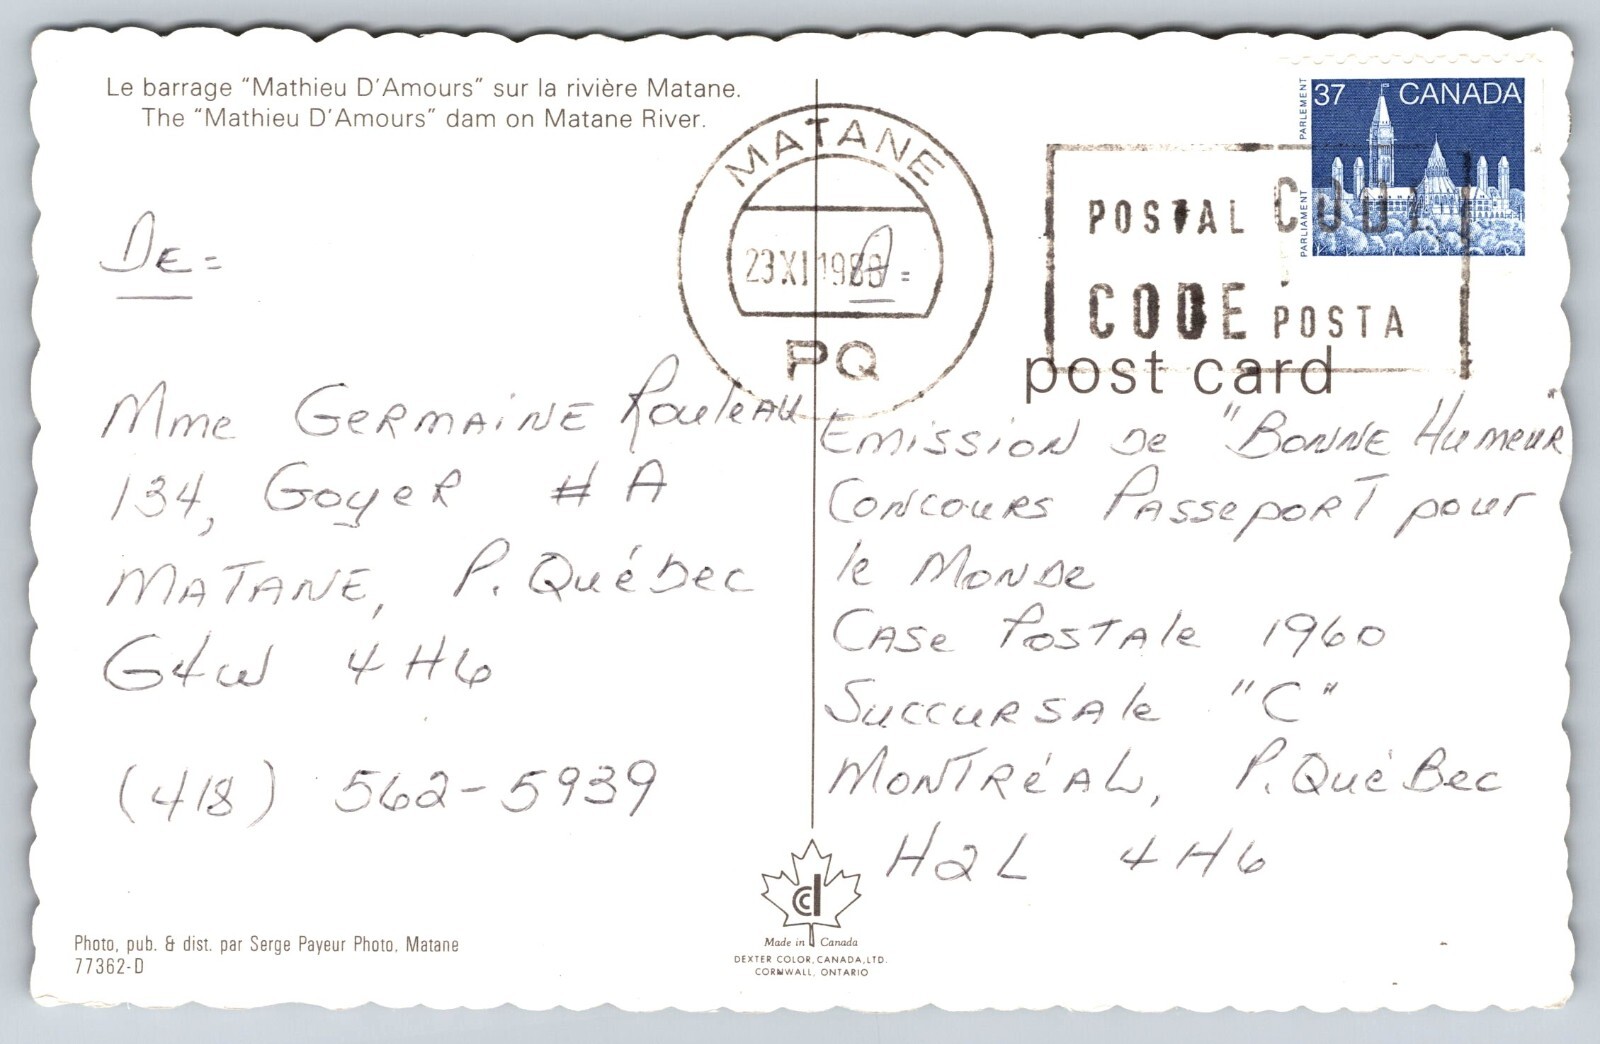 Le barrage "Mathieu D'Amours" sur la rivière Matane.
The "Mathieu D'Amours" dam on Matane River.
DE =
Mme GERMAINE Rouleau
134, Goyer # A
MATANE, P. Québec
G4W 4H6
(418) 562-5939
Photo, pub. & dist. par Serge Payeur Photo, Matane
77362-D
MATANE
23 XI 198
À =
PQ
POSTAL CODE
CODE POSTA
PARLIAMENT PARLEMENT
37 CANADA
post card
Emission de "BONNE HUMEUR"
Concours Passeport pour
le MONDE
CASE POSTAle 1960
SuccursAle "C"
MONTRÉAL, P. QuéBec
H2L 4H6
cdc
Made in Canada
DEXTER COLOR, CANADA, LTD.
CORNWALL, ONTARIO